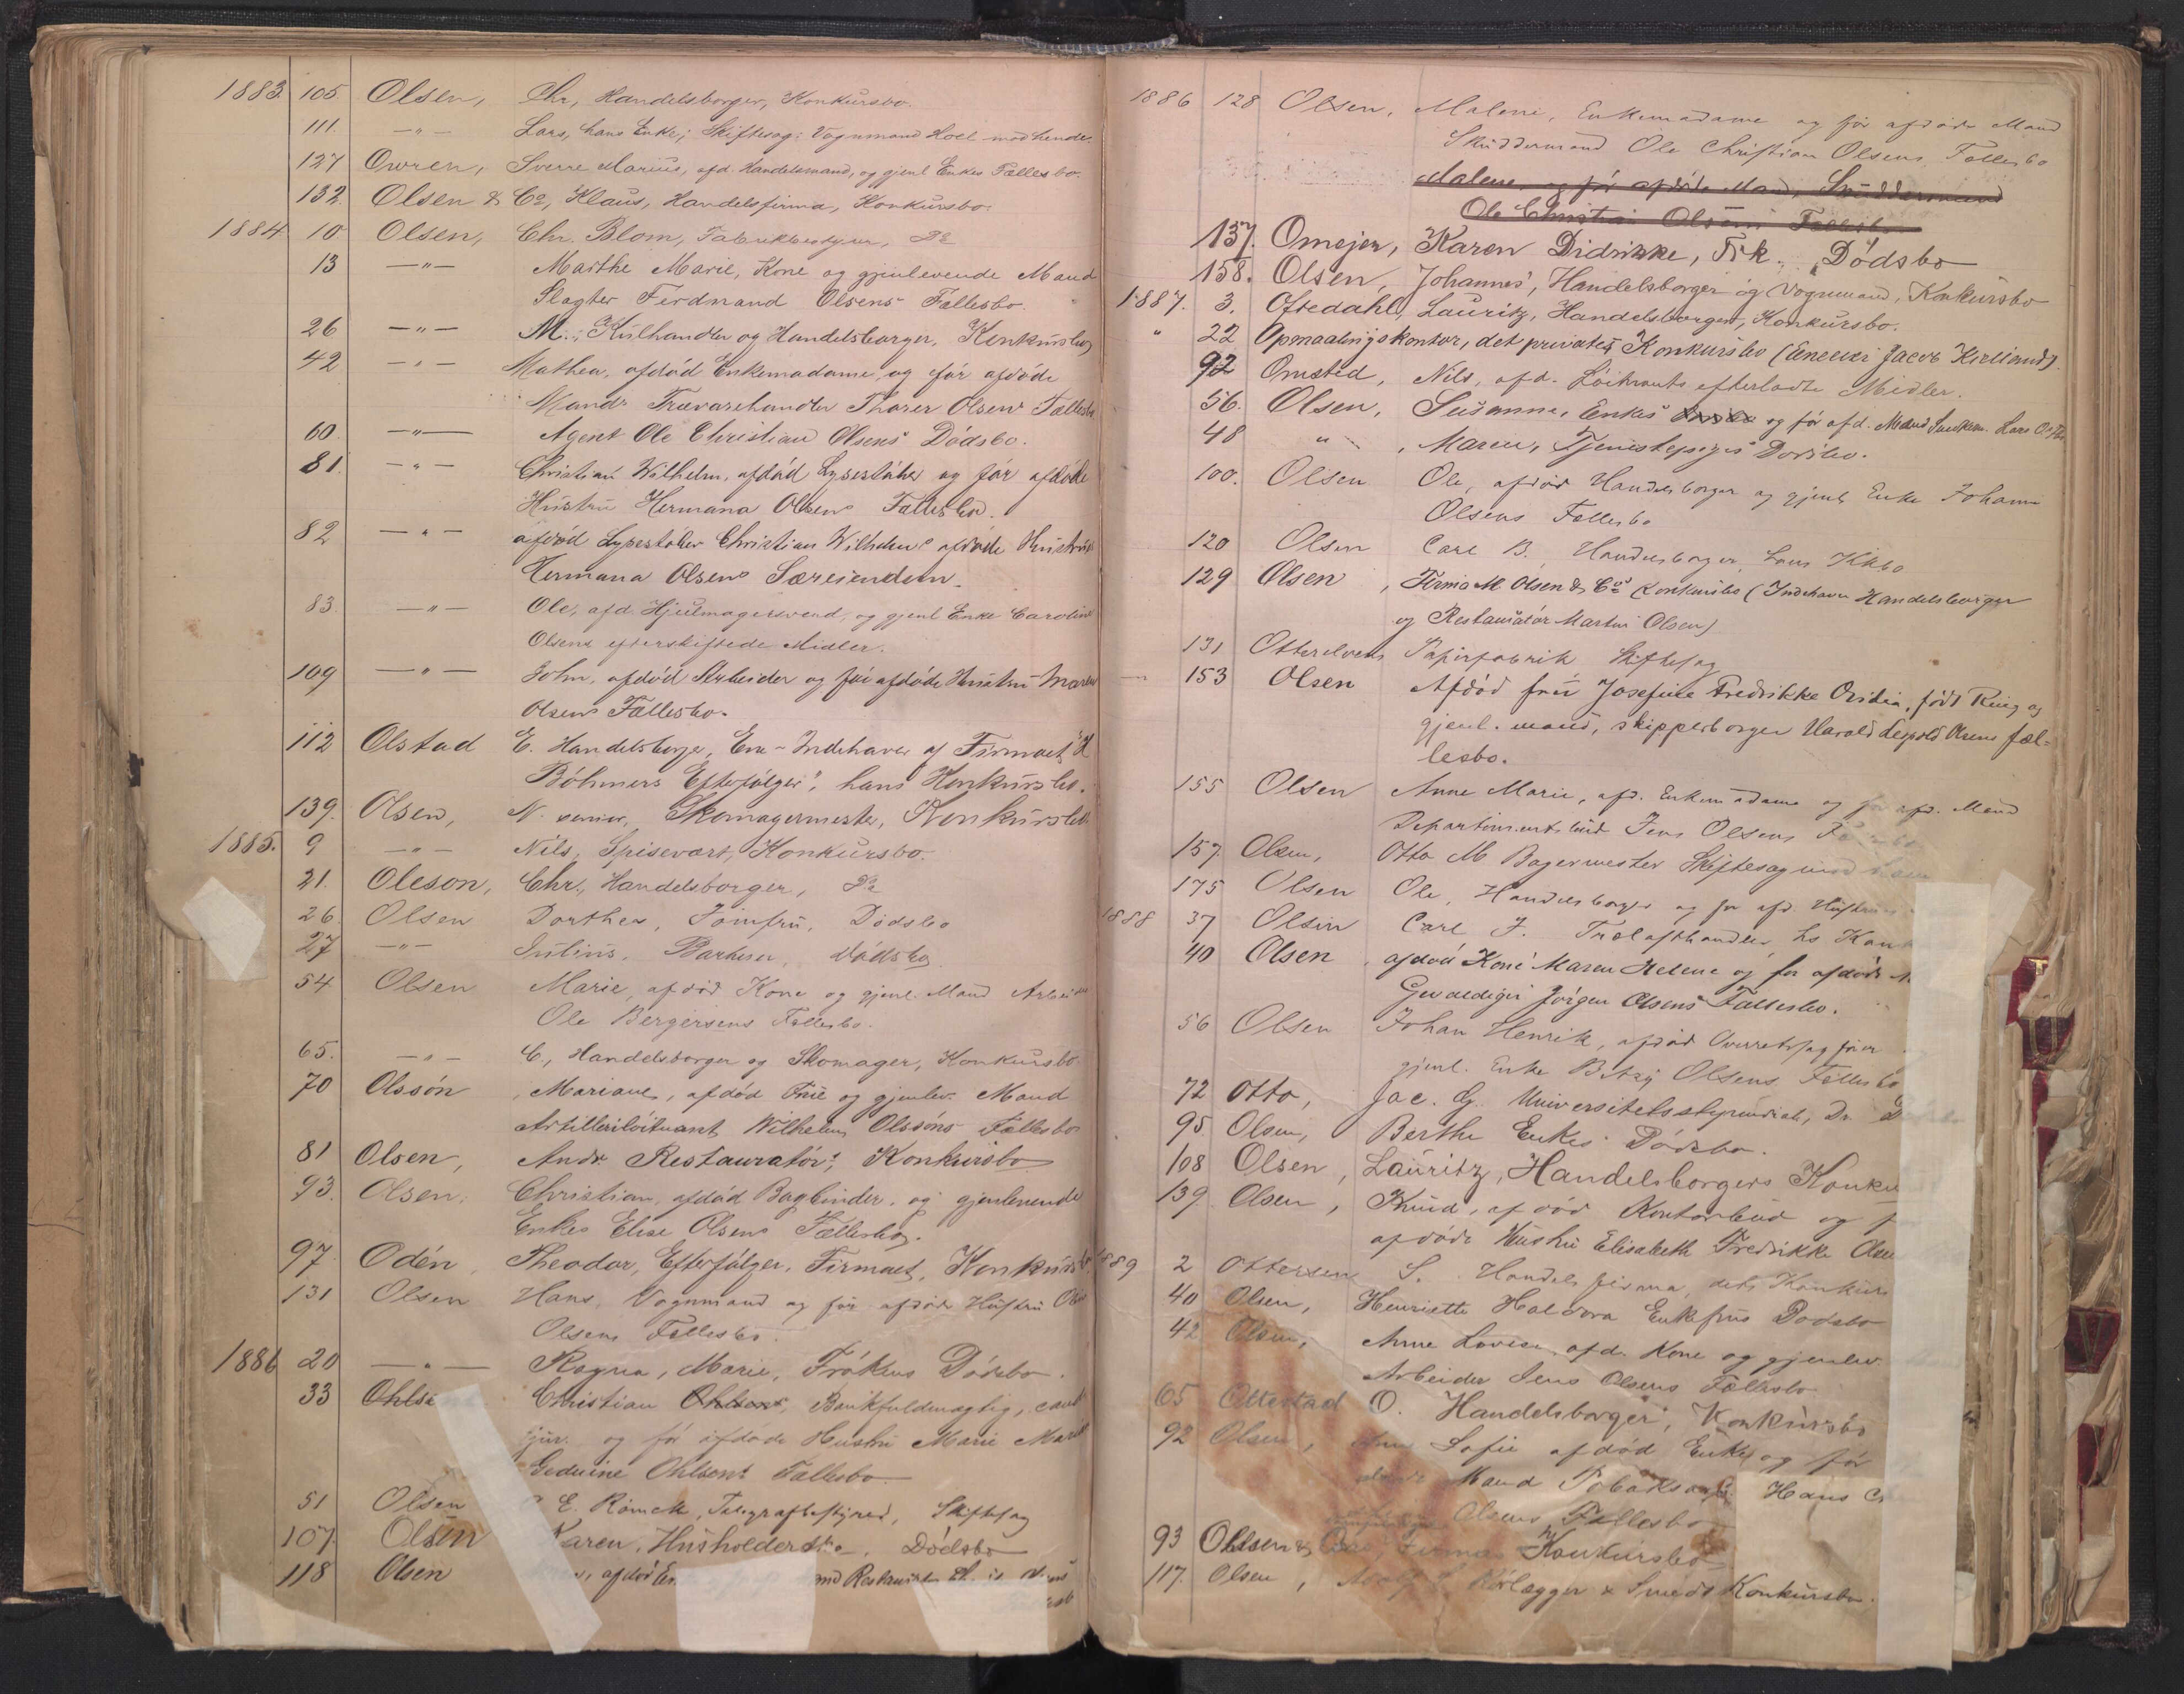 1883. 105 Olsen, Chr, Handelsborger, Konkursbo.
111. —"— Lars, hans Enke; Skiftesag: Vognmand Hoel mod hende.
127 Owren, Sverre Marius, afd. Handelsmand, og gjenl Enkes Fællesbo.
132. Olsen & Co, Klaus, Handelsfirma, Konkursbo.
1884 10 Olsen, Chr. Blom, Fabrikbestyrer, Do
13 —"— Marthe Marie, Kone og gjenlevende Mand
Slagter Ferdinand Olsens Fællesbo.
26 —"— M., Kulhandler og Handelsborger, Konkursbo
42 —"— Mathea, afdød Enkemadame, og før afdøde
Mands Trævarehandler Thorer Olsens Fællesbo
60 —"— Agent Ole Christian Olsens Dødsbo.
81. —"— Christian Wilhelm, afdød Lysestøber og før afdøde
Hustru Hermana Olsens Fællesbo.
82 —"— afdød Lysestøber Christian Wilhelms afdøde Hustru
Hermana Olsens Særeiendom.
83. —"— Ole, afd. Hjulmagersvend, og gjenl Enke Caroline
Olsens efterskiftede Midler.
109 —"— John, afdød Arbeider og før afdøde Hustru Maren
Olsens Fællesbo.
112 Olstad E. Handelsborger, Ene-Indehaver af Firmaet "H
Böhmers Efterfølger", hans Konkursbo.
139. Olsen, N. senior, Skomagermester, Konkursbo
1885. 9 —"— Nils, Spisevært, Konkursbo.
21. Oleson, Chr., Handelsborger, Do
26. Olsen Dorthea, Jomfru, Dødsbo
27 —"— Julius, Barberer, Dødsbo
54 Olsen Marie, afdød Kone og gjenl. Mand Arbeider
Ole Bergersens Fællesbo.
65. —"— C., Handelsborger og Skomager, Konkursbo
70 Olssön, Mariane, afdød Frue og gjenlev. Mand
Artilleriløitnant Wilhelm Olssöns Fællesbo
81 Olsen, Andr. Restauratør, Konkursbo
93. Olsen, Christian, afdød Bogbinder, og gjenlevende
Enkes Elise Olsens Fællesbo.
97. Odén, Theodor, Efterfølger, Firmaet, Konkursbo
131 Olsen Hans, Vognmand og før afdøde Hustru
Olsens Fællesbo.
1886 20 —"— Ragna, Marie, Frøkens Dødsbo.
33 Christian Ohlsens, Bankfuldmægtig, cand
jur. og før afdøde Hustru Marie
Ohlsens Fællesbo.
51 Olsen E. Rømck, Telegrafbestyrer, Skiftesag
107 Olsen Karen, Husholderske, Dødsbo
118 Olsen afdød
1886 128 Olsen, Malene, Enkemadame og før afdøde Mand
Skræddermand Ole Christian Olsens Fællesbo
Malene og før afdøde Mand, Skræddermand
Ole Christian Olsens Fællesbo
137. Omejer, Karen Didrikke, Frk., Dødsbo
158. Olsen, Johannes, Handelsborger og Vognmand, Konkursbo
1887. 3. Oftedahl, Lauritz, Handelsborger, Konkursbo.
" 22 Opmaalingskontor, det private, Konkursbo (Eneeier Jacob Kielland).
92 Omsted, Nils, afd. Løitnants efterladte Midler.
56. Olsen, Susanne, Enkes og før afd. Mand Snedkerm. Lars
48 " , Maren, Tjenestepiges Dødsbo.
100. Olsen Ole, afdød Handelsborger og gjenl Enke Johanne
Olsens Fællesbo
120 Olsen Carl B. Handelsborger, hans Kkbo
129 Olsen, Firma M. Olsen & Co Konkursbo (Indehaver Handelsborger
og Restauratør Martin Olsen)
131 Otterelvens Papirfabrik Skiftesag
153 Olsen Afdød fru Josefine Fredrikke Ovidia, født Ring og
gjenl. mand, skipperborger Harald Leopold Olsens fæl-
lesbo.
155 Olsen Anne Marie, afd. Enkemadame og før afd. Mand
Departementsbud Jens Olsens
157. Olsen, Otto M Bagermester Skiftesag mod ham
175 Olsen Ole, Handelsborger og før afd. Hustrus
1888 37 Olsen Carl J. Trælasthandler hs Konk
40 Olsen, afdød Kone Maren Helene og før afdøde
Gevaldiger Jørgen Olsens Fællesbo.
56 Olsen Johan Henrik, afdød Overretssagfører
gjenl. Enke Betzy Olsens Fællesbo
72 Otto, Jac. G. Universitetsstipendiat, Dr
95. Olsen, Berthe Enkes Dødsbo.
108 Olsen, Lauritz, Handelsborgers Konku
139. Olsen, Knud, afdød Kontorbud og f
afdøde Hustru Elisabeth Fredrikke Olse
1889 2 Ottersen S. Handelsfirma, dets Konkurs
40 Olsen, Henriette Haldora Enkefrus Dødsbo
42 Olsen, Anne Lovise, afd. Kone og gjenlev.
Arbeider Jens Olsens Fællesbo
65 Ottestad O. Handelsborger, Konkursbo
92 Olsen, Sofie afdød Enke og før
Mand Hans
Olsens Fællesbo
93 Ohlsen & Firma Konkursbo
117. Olsen, Rørlægger & Smeds Konkursbo.